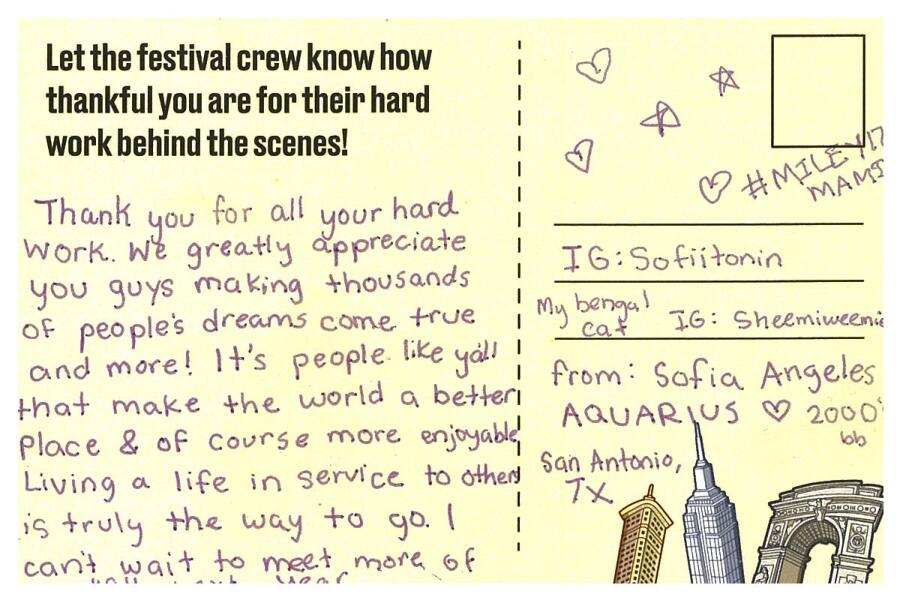 Let the festival crew know how
thankful you are for their hard
work behind the scenes!
Thank you for all your hard
work. We greatly appreciate
you guys making thousands
of people's dreams come true
and more! It's people like yall
that make the world a better
place & of course more enjoyable
Living a life in service to others
is truly the way to go. I
can't wait to meet more of
#MILEY17
MAMI
IG: Sofiitonin
My bengal
cat IG: Sheemiweemie
from: Sofia Angeles
AQUARIUS ♡ 2000'
bb
San Antonio,
TX